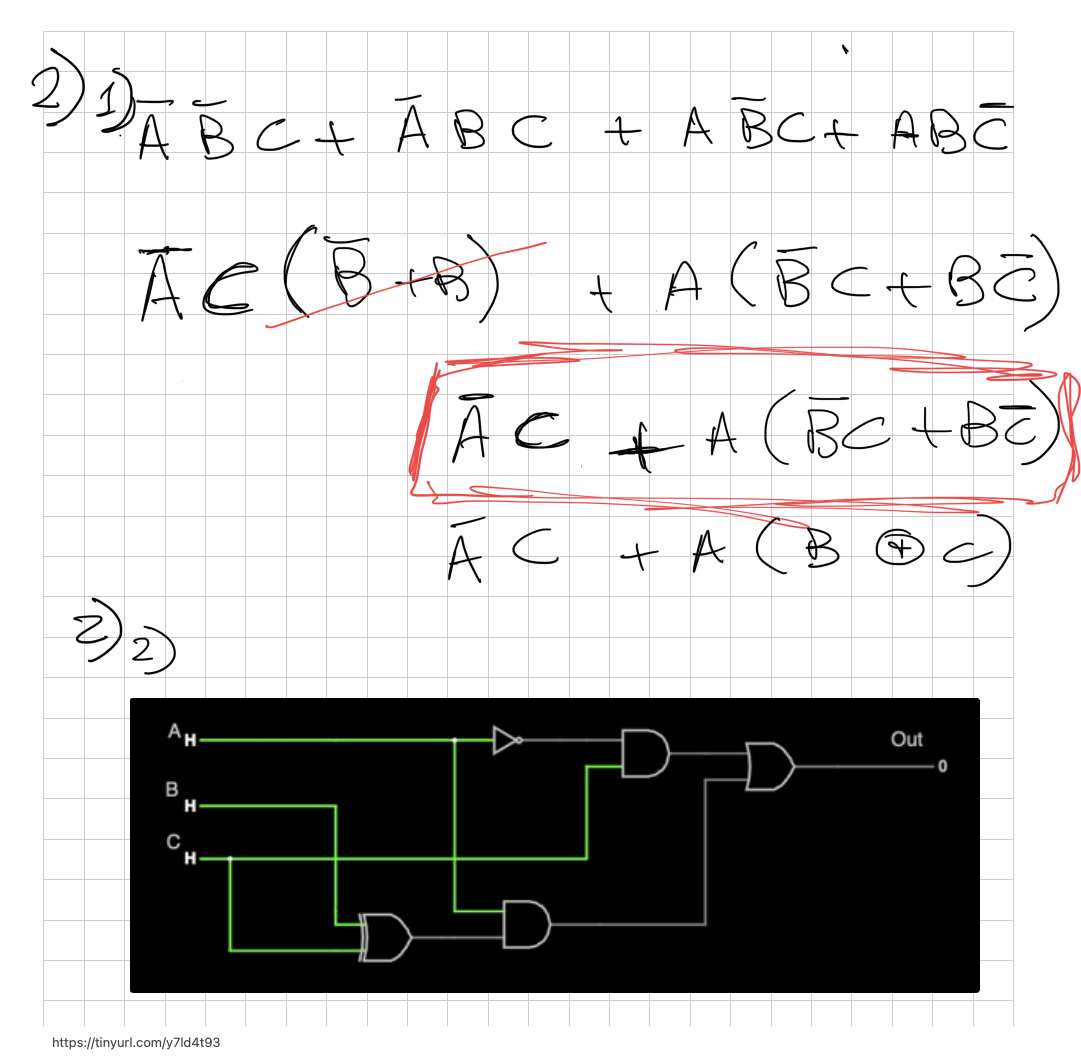 2) 1) A̅ B̅ C + A̅ B C + A B̅ C + A B C̅
A̅ C (B̅ + B) + A (B̅ C + B C̅)
A̅ C + A (B̅ C + B C̅)
A̅ C + A (B ⊕ C)
2) 2)
A H
Out
0
B H
C H
https://tinyurl.com/y7ld4t93